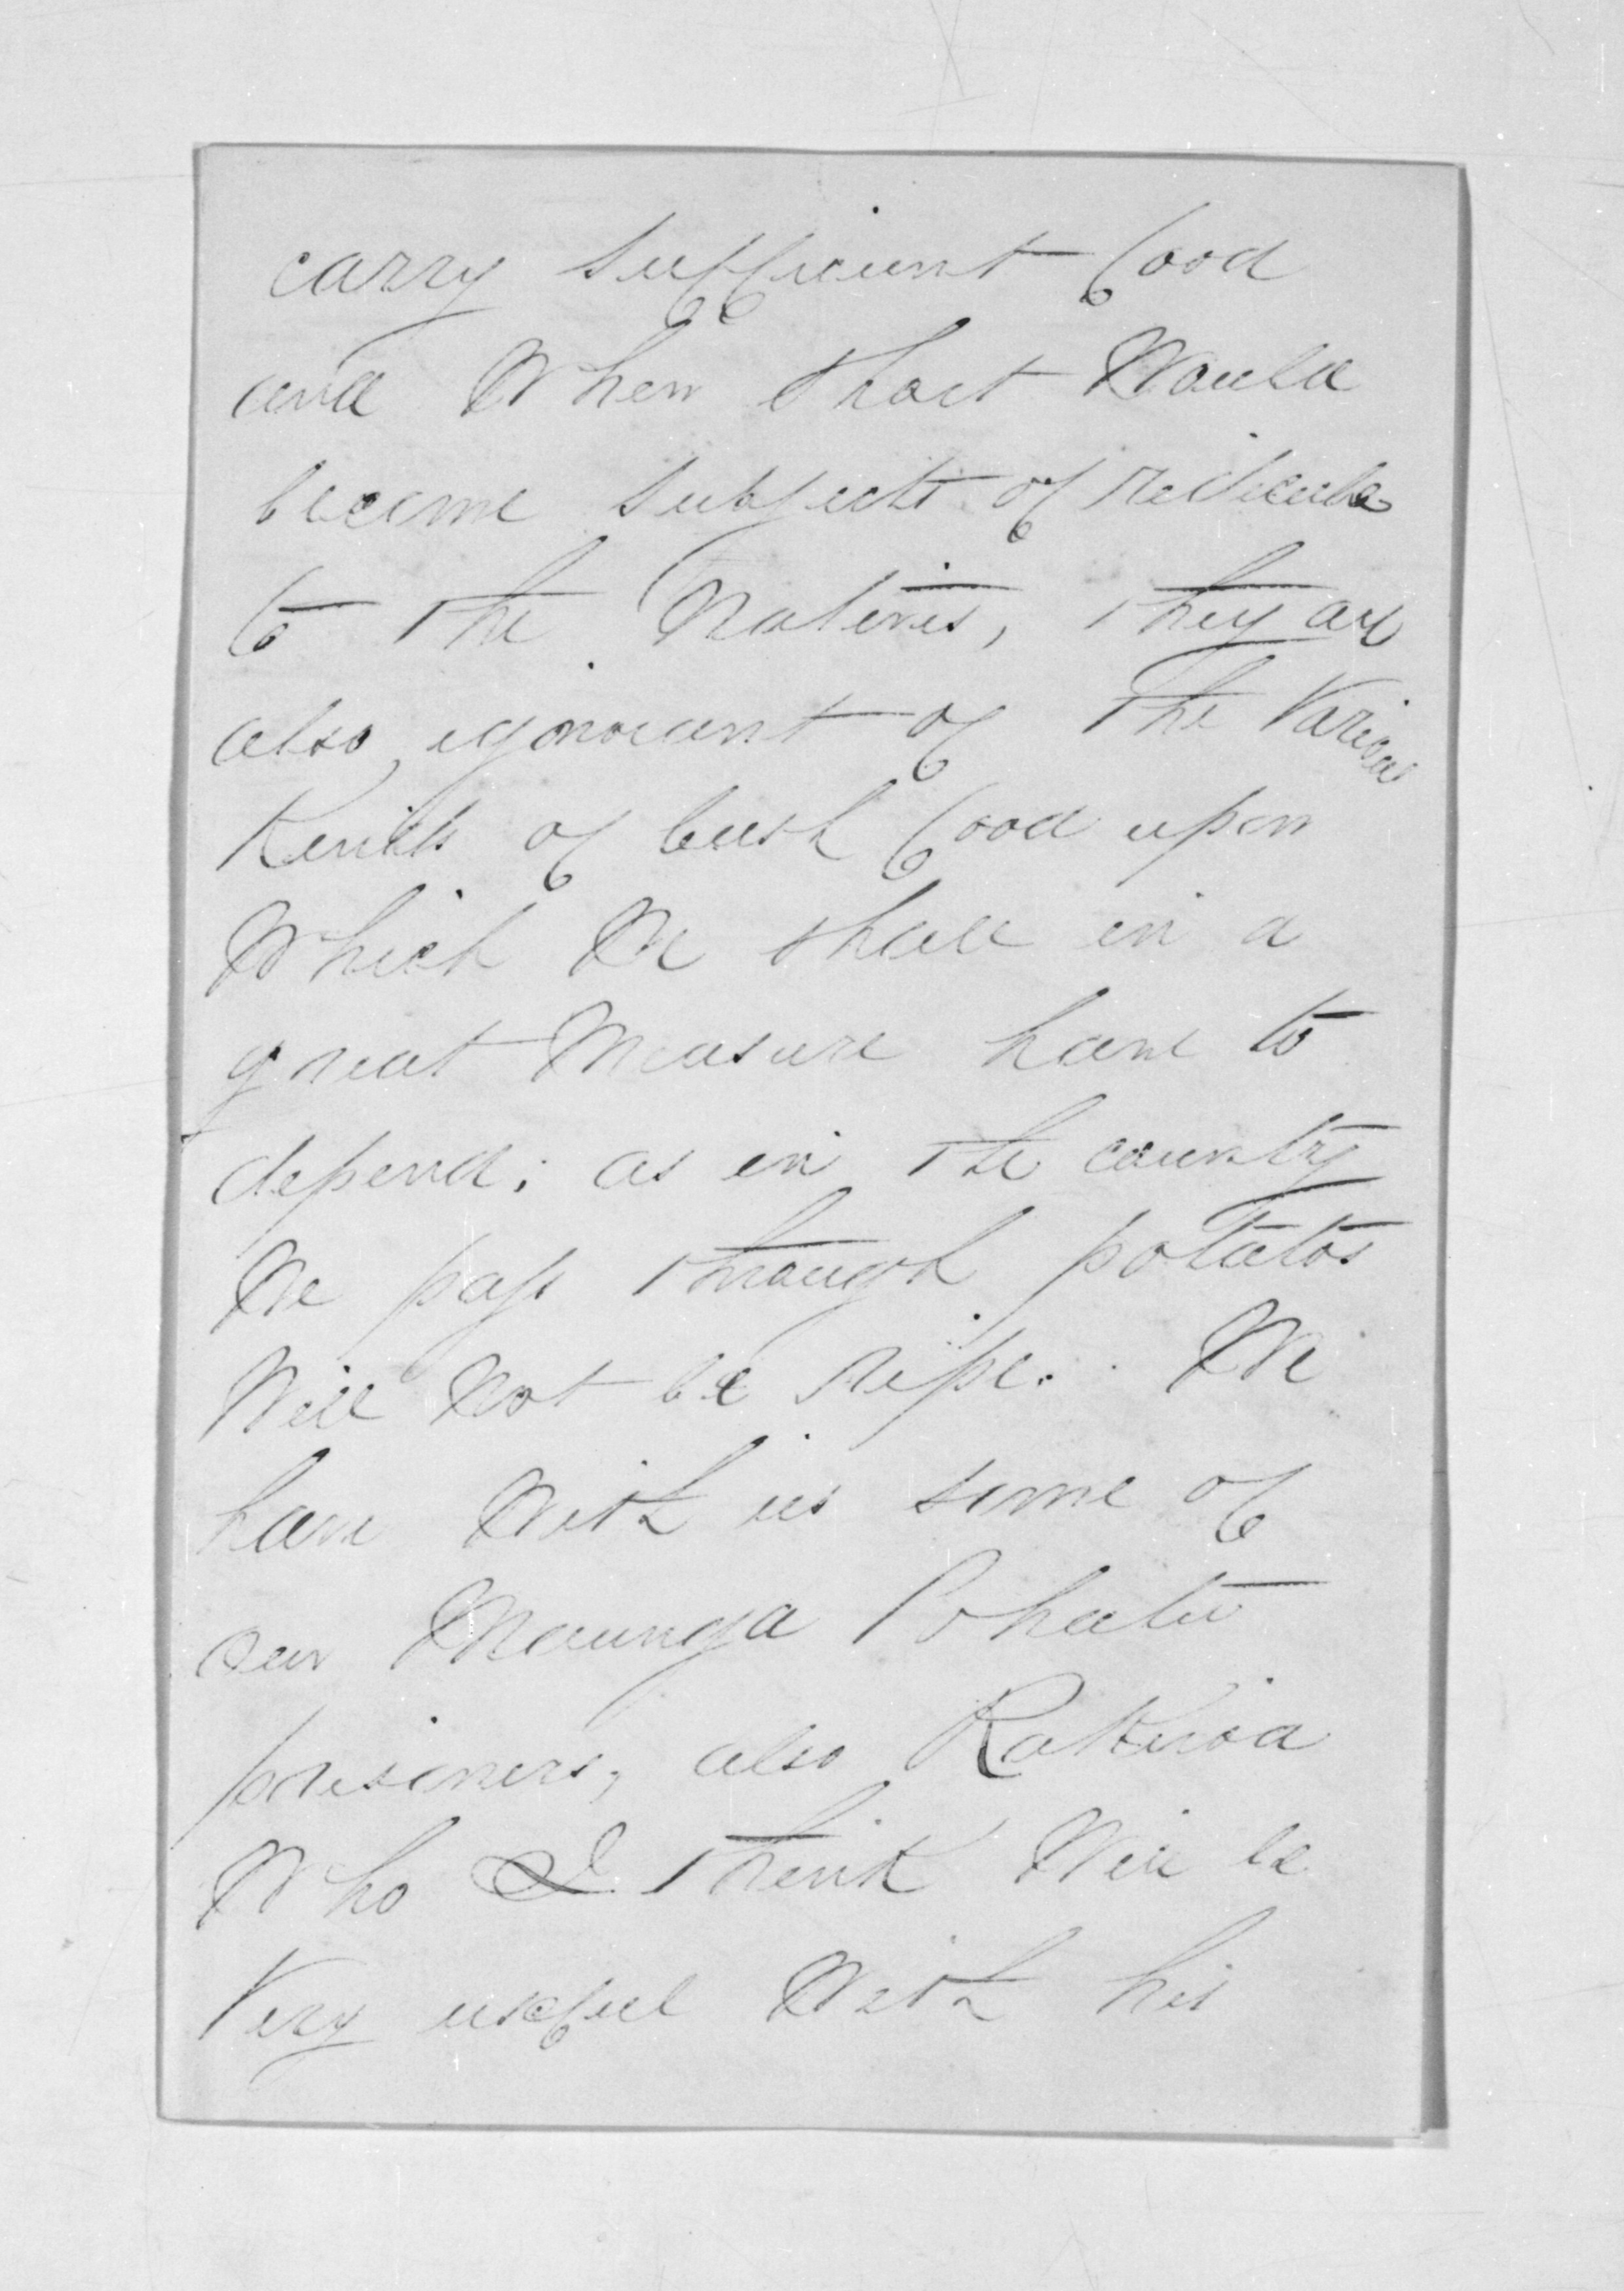 carry sufficient food
and When short Would
become subjects of redicule
to the Natives, they are
also ignorant of the Various
Kinds of bush food upon
Which We shall in a
great Measure have to
depend; as in the country
We pass through potatos
Will Not be ripe. We
have With us some of
our Maunga Pohatu
prisoners, also Rakiroa
Who I think Will be
Very useful With his